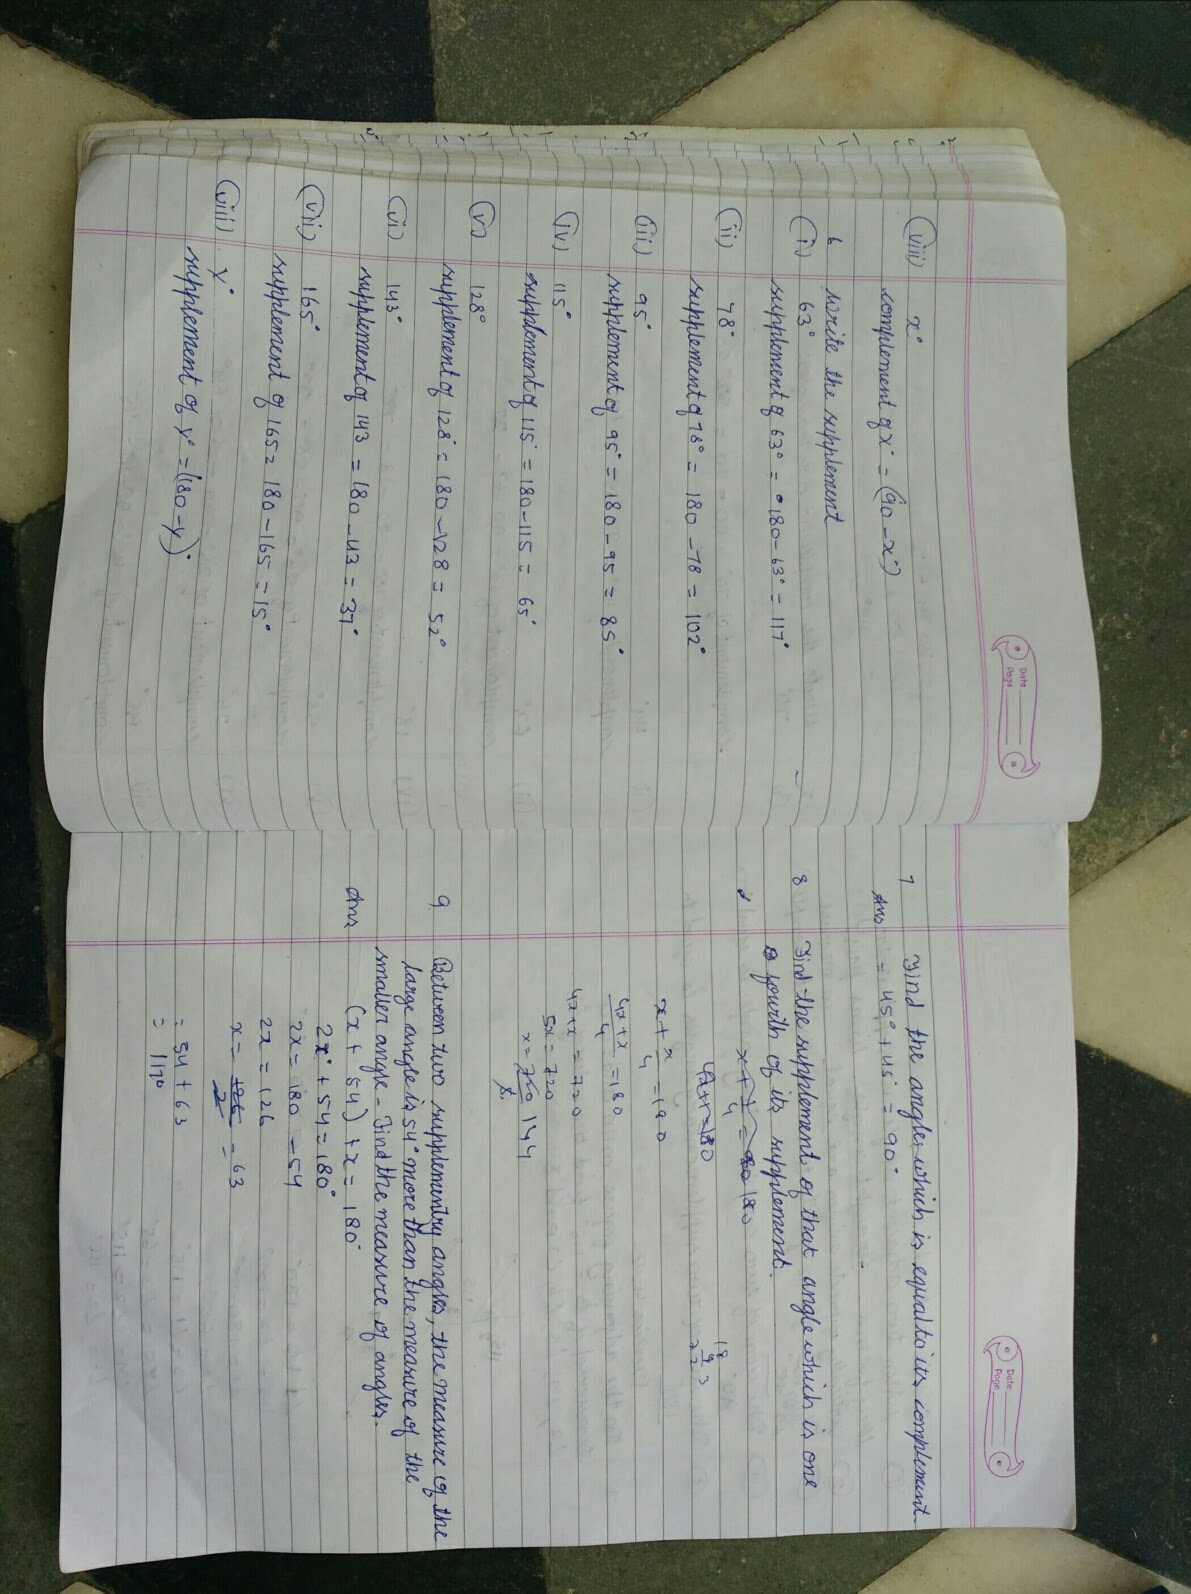 Date
Page
(viii) x°
complement of x° = (90 - x°)
6 Write the supplement
(i) 63°
supplement of 63° = 180 - 63° = 117°
(ii) 78°
supplement of 78° = 180 - 78 = 102°
(iii) 95°
supplement of 95° = 180 - 95 = 85°
(iv) 115°
supplement of 115° = 180 - 115 = 65°
(v) 128°
supplement of 128° = 180 - 128 = 52°
(vi) 143°
supplement of 143 = 180 - 143 = 37°
(vii) 165°
supplement of 165 = 180 - 165 = 15°
(viii) y°
supplement of y° = (180 - y)°
Date
Page
7 Find the angle, which is equal to its complement.
Ans = 45° + 45° = 90°
8 Find the supplement of that angle which is one
fourth of its supplement.
x + x/4 = 180
4x + x/4 = 180
4x + x = 720
5x = 720
x = 144
9 Between two supplementry angles, the measure of the
large angle is 54° more than the measure of the
smaller angle - Find the measure of angles.
Ans (x + 54) + x = 180°
2x + 54 = 180°
2x = 180 - 54
2x = 126
x = 126/2 = 63
= 54 + 63
= 117°